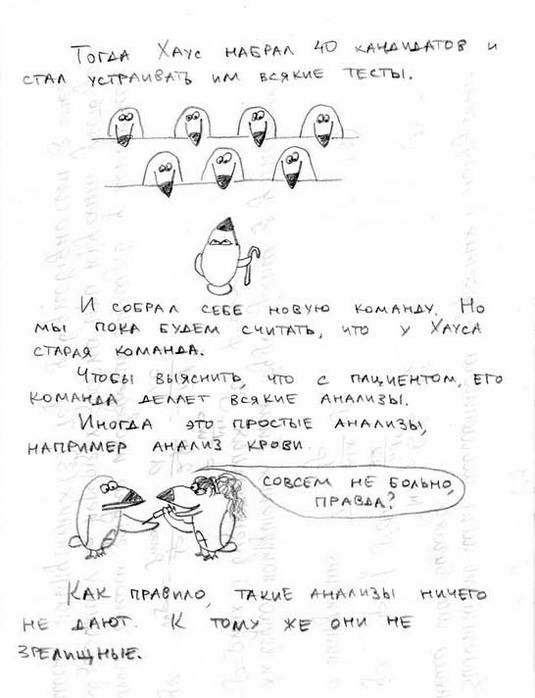 Тогда Хаус набрал 40 кандидатов и
стал устраивать им всякие тесты.
И собрал себе новую команду. Но
мы пока будем считать, что у Хауса
старая команда.
Чтобы выяснить, что с пациентом, его
команда делает всякие анализы.
Иногда это простые анализы,
например анализ крови.
Совсем не больно,
правда?
Как правило, такие анализы ничего
не дают. К тому же они не
зрелищные.